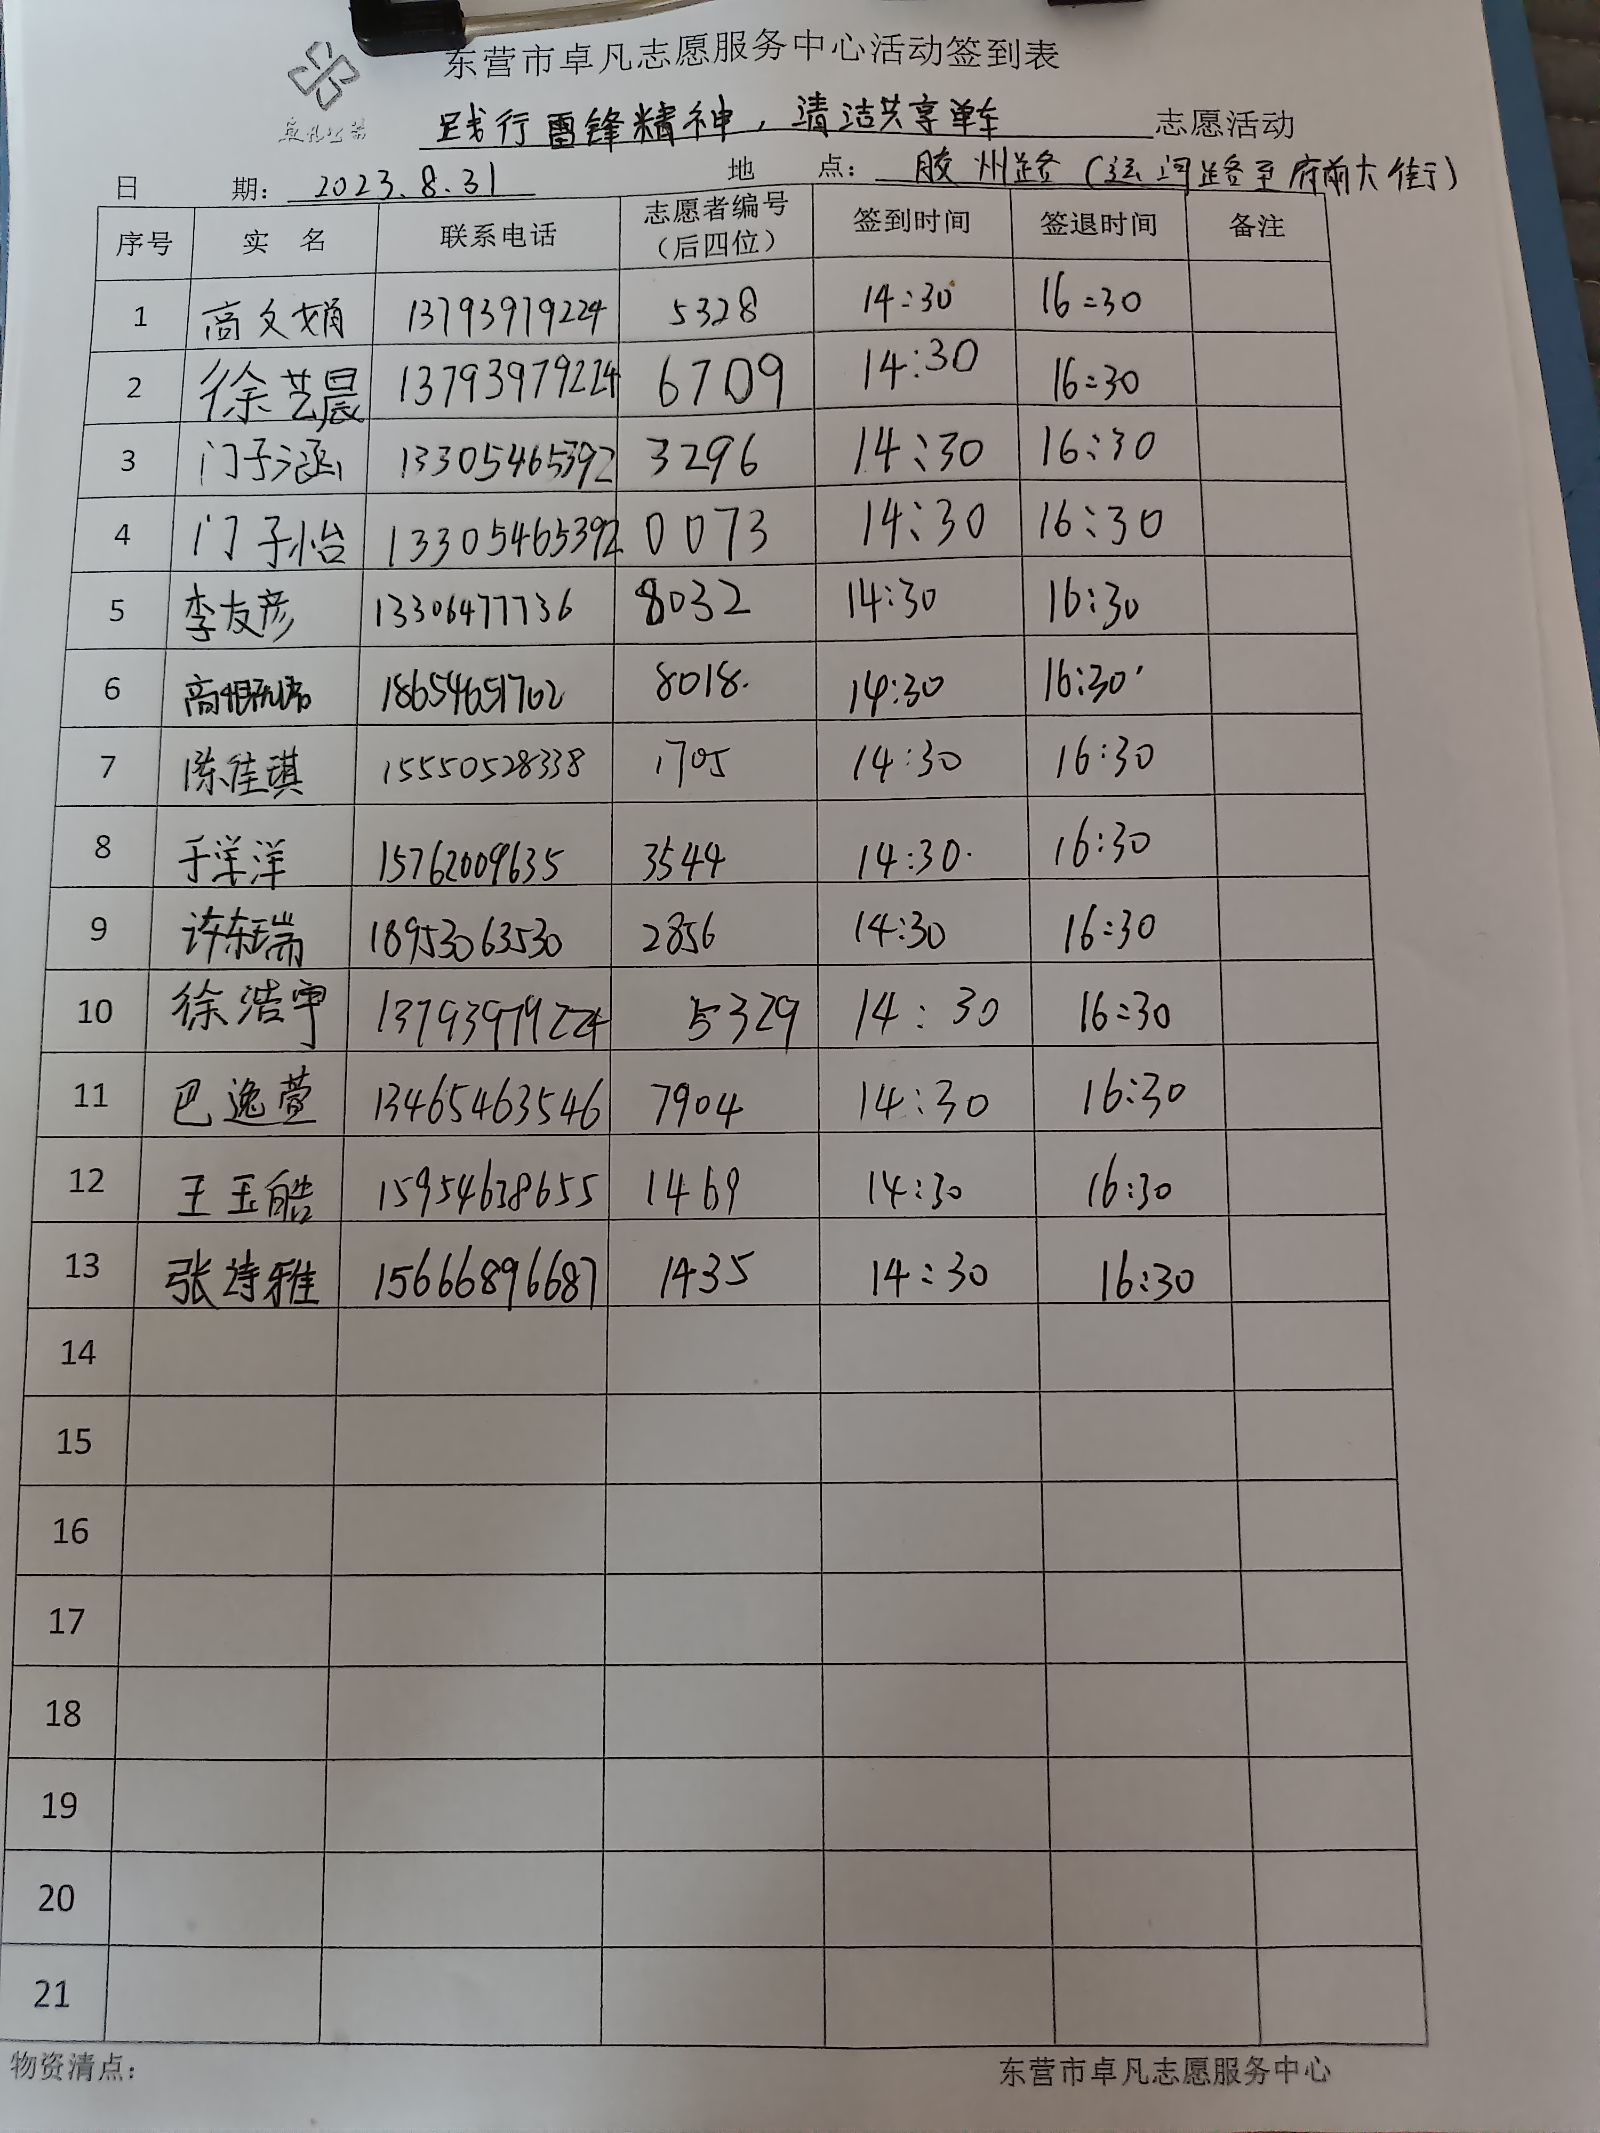 东营市卓凡志愿服务中心活动签到表
卓凡公益
践行雷锋精神，清洁共享单车 志愿活动
日 期： 2023.8.31 地 点： 胶州路（运河路至府前大街）
序号 实 名 联系电话 志愿者编号（后四位） 签到时间 签退时间 备注
1 高文娟 13793979224 5328 14:30 16:30
2 徐艺晨 13793979224 6709 14:30 16:30
3 门子涵 13305465392 3296 14:30 16:30
4 门子怡 13305465392 0073 14:30 16:30
5 李友彦 13306477736 8032 14:30 16:30
6 高 18654651702 8018 14:30 16:30
7 陈佳琪 15550528338 1705 14:30 16:30
8 于洋洋 15762009635 3544 14:30 16:30
9 许东瑞 18953063530 2856 14:30 16:30
10 徐浩宇 13793979224 5329 14:30 16:30
11 巴逸萱 13465463546 7904 14:30 16:30
12 王玉皓 15954638655 1469 14:30 16:30
13 张诗雅 15666896687 1435 14:30 16:30
14
15
16
17
18
19
20
21
物资清点： 东营市卓凡志愿服务中心